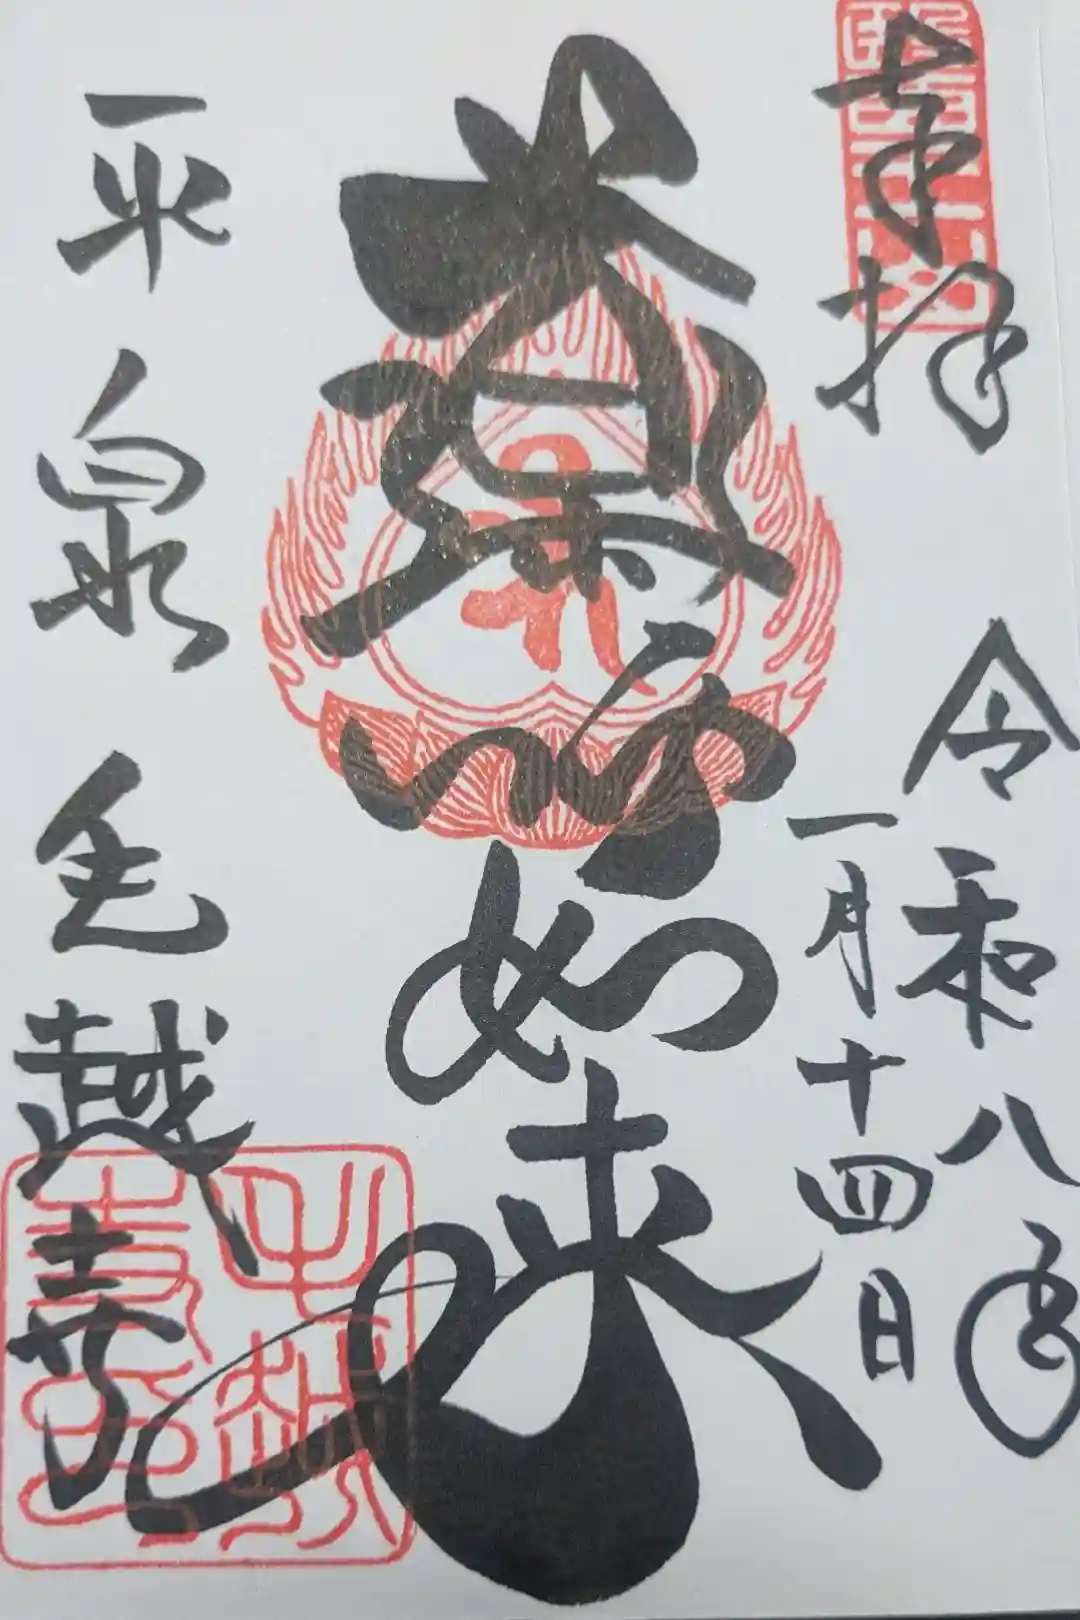 奉拝
令和八年
一月十四日
薬師如来
平泉 毛越寺
醫王山
毛越寺印